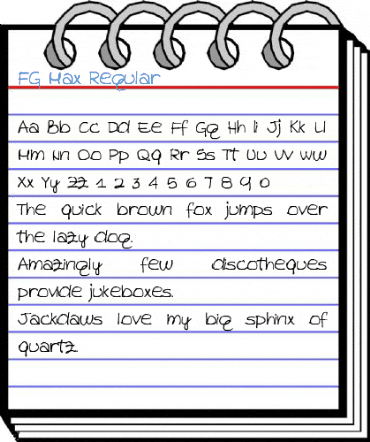 FG Max Regular
Aa Bb Cc Dd Ee Ff Gg Hh Ii Jj Kk Ll
Mm Nn Oo Pp Qq Rr Ss Tt Uu Vv Ww
Xx Yy Zz 1 2 3 4 5 6 7 8 9 0
The quick brown fox jumps over
the lazy dog.
Amazingly few discotheques
provide jukeboxes.
Jackdaws love my big sphinx of
quartz.